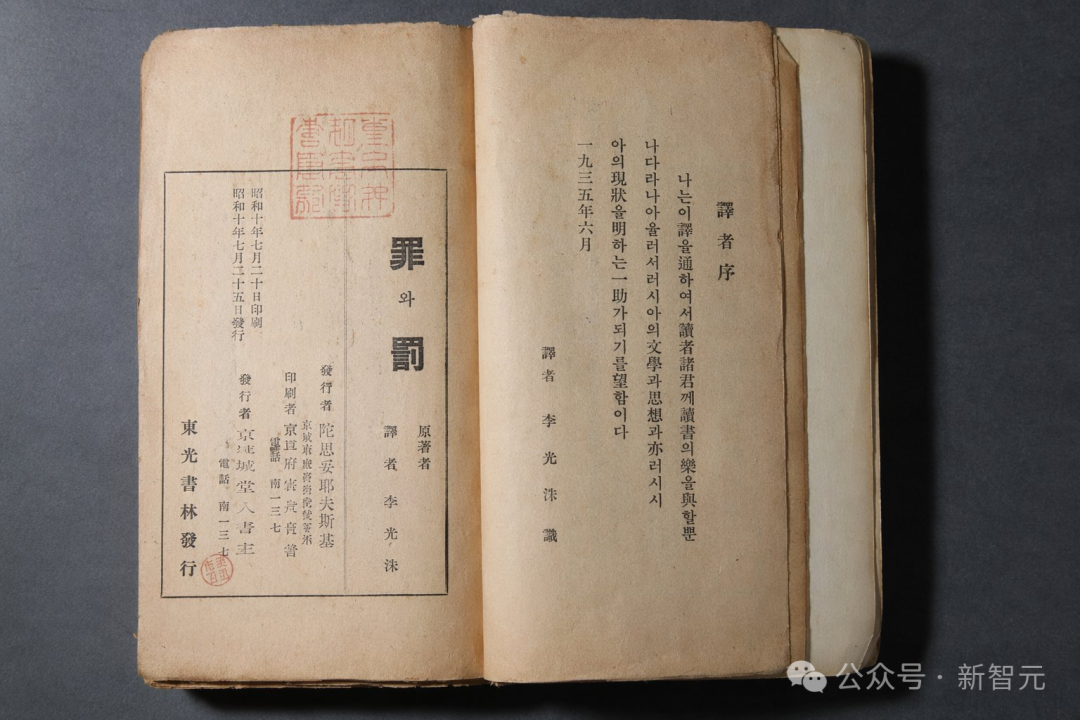 譯者序
나는이譯을通하여서讀者諸君께讀書의樂을與할뿐
나다라나아울러서러시아의文學과思想과亦러시시
아의現狀을明하는一助가되기를望함이다
一九三五年六月
譯者 李光洙 識
罪와罰
原著者
譯者 李光洙
發行者 陀思妥耶夫斯基
印刷者
電話 南一三七
昭和十年七月二十日印刷
昭和十年七月二十五日發行
發行者 城堂入書主
電話 南一三七
東光書林發行
公众号·新智元